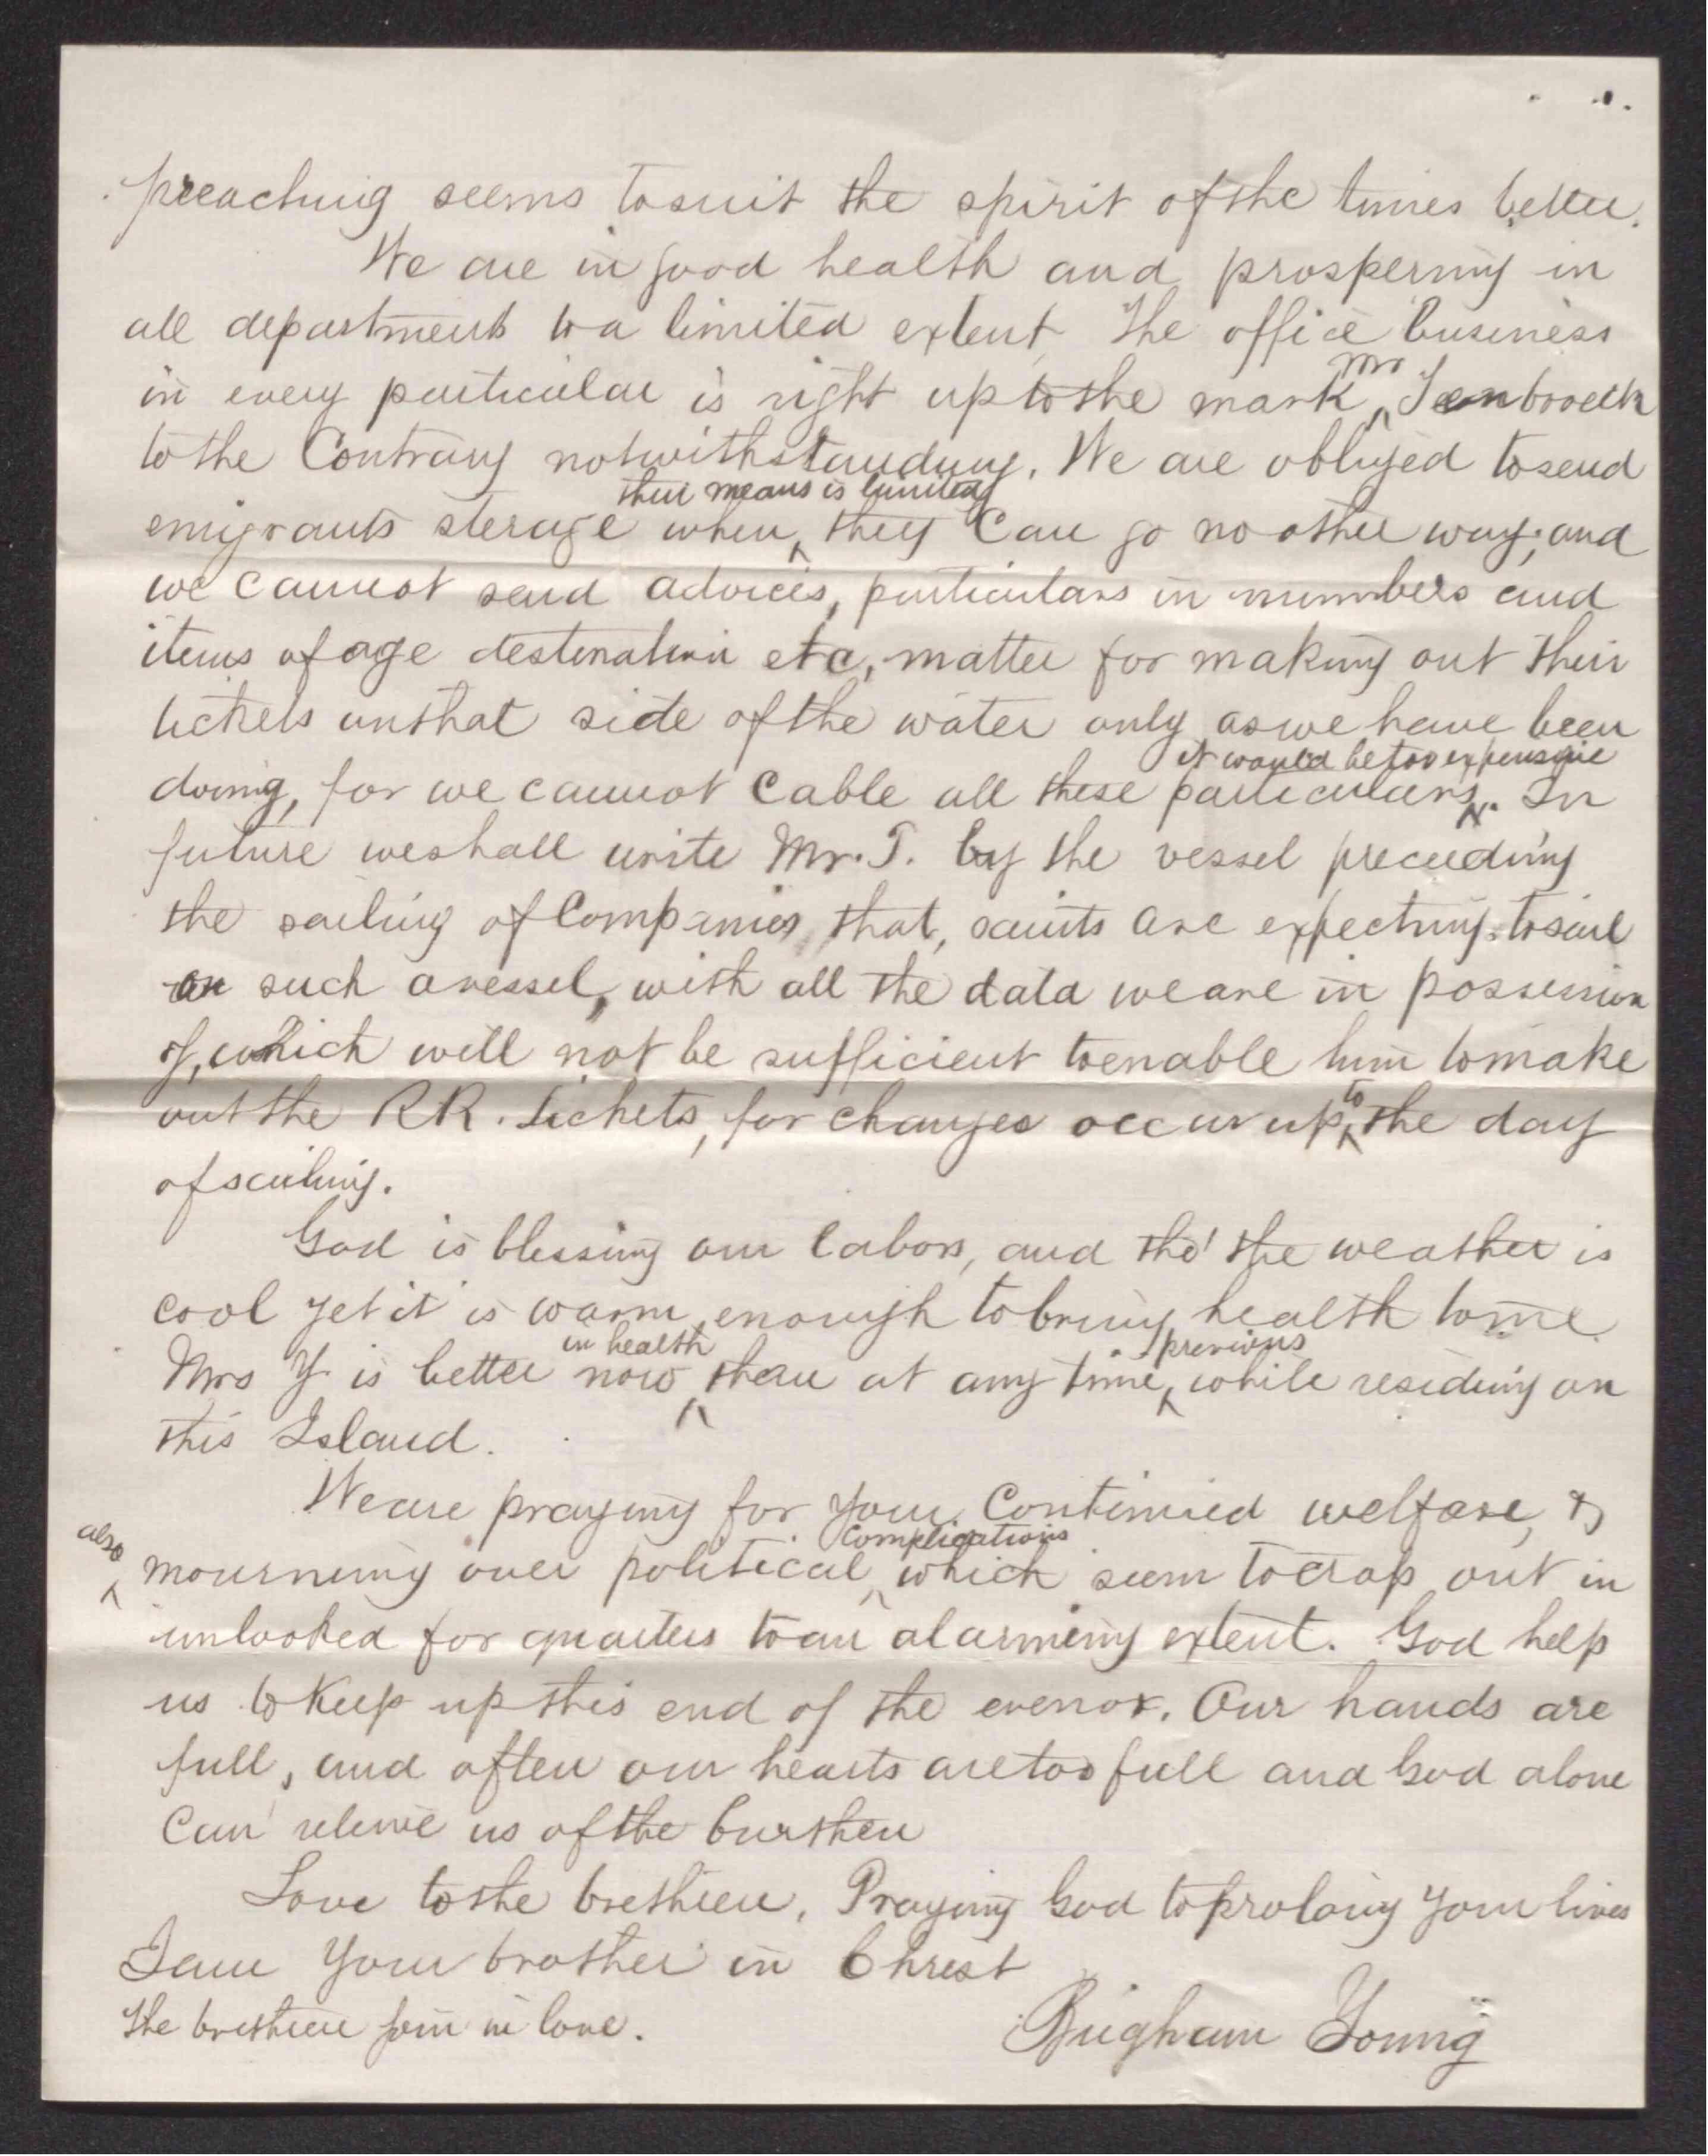 preaching seems to suit the spirit of the times better.
We are in good health and prospering in
all departments to a limited extent, The office business
in every particular is right up to the mark Mr Tenbroeck
to the Contrary notwithstanding. We are obliged to send
emigrants sterage when their means is limited they Can go no other way; and
we cannot send advices, particulars in numbers and
items of age destination etc, matter for making out their
tickets on that side of the water only as we have been
doing, for we cannot Cable all these particulars it would be too expensive. In
future we shall write Mr. T. by the vessel preceeding
the sailing of Companies that, saints are expecting to sail
on such a vessel, with all the data we are in possession
of, which will not be sufficient to enable him to make
out the RR. tickets, for changes occur up to the day
of sailing.
God is blessing our labors, and tho' the weather is
cool yet it is warm enough to bring health to me.
Mrs Y is better now in health than at any time previous while residing on
this Island.
We are praying for your Continued welfare, &
also mourning over political Complications which seem to crop out in
unlooked for quarters to an alarming extent. God help
us to Keep up this end of the evenor. Our hands are
full, and often our hearts are too full and God alone
Can relieve us of the burthen
Love to the brethren, Praying God to prolong your lives
I am Your brother in Christ
The brethren join in love.
Brigham Young